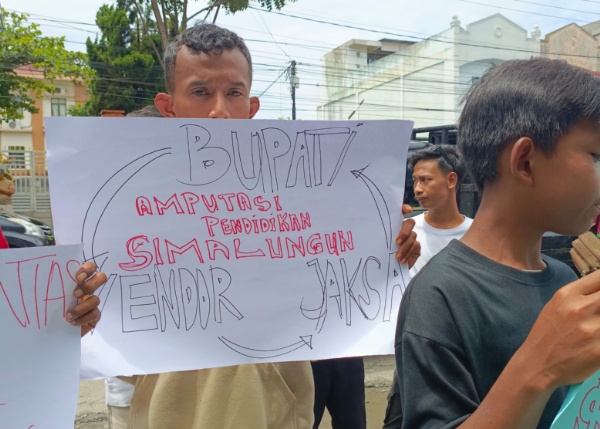 BUPATI
AMPUTASI
PENDIDIKAN
SIMALUNGUN
VENDOR JAKSA